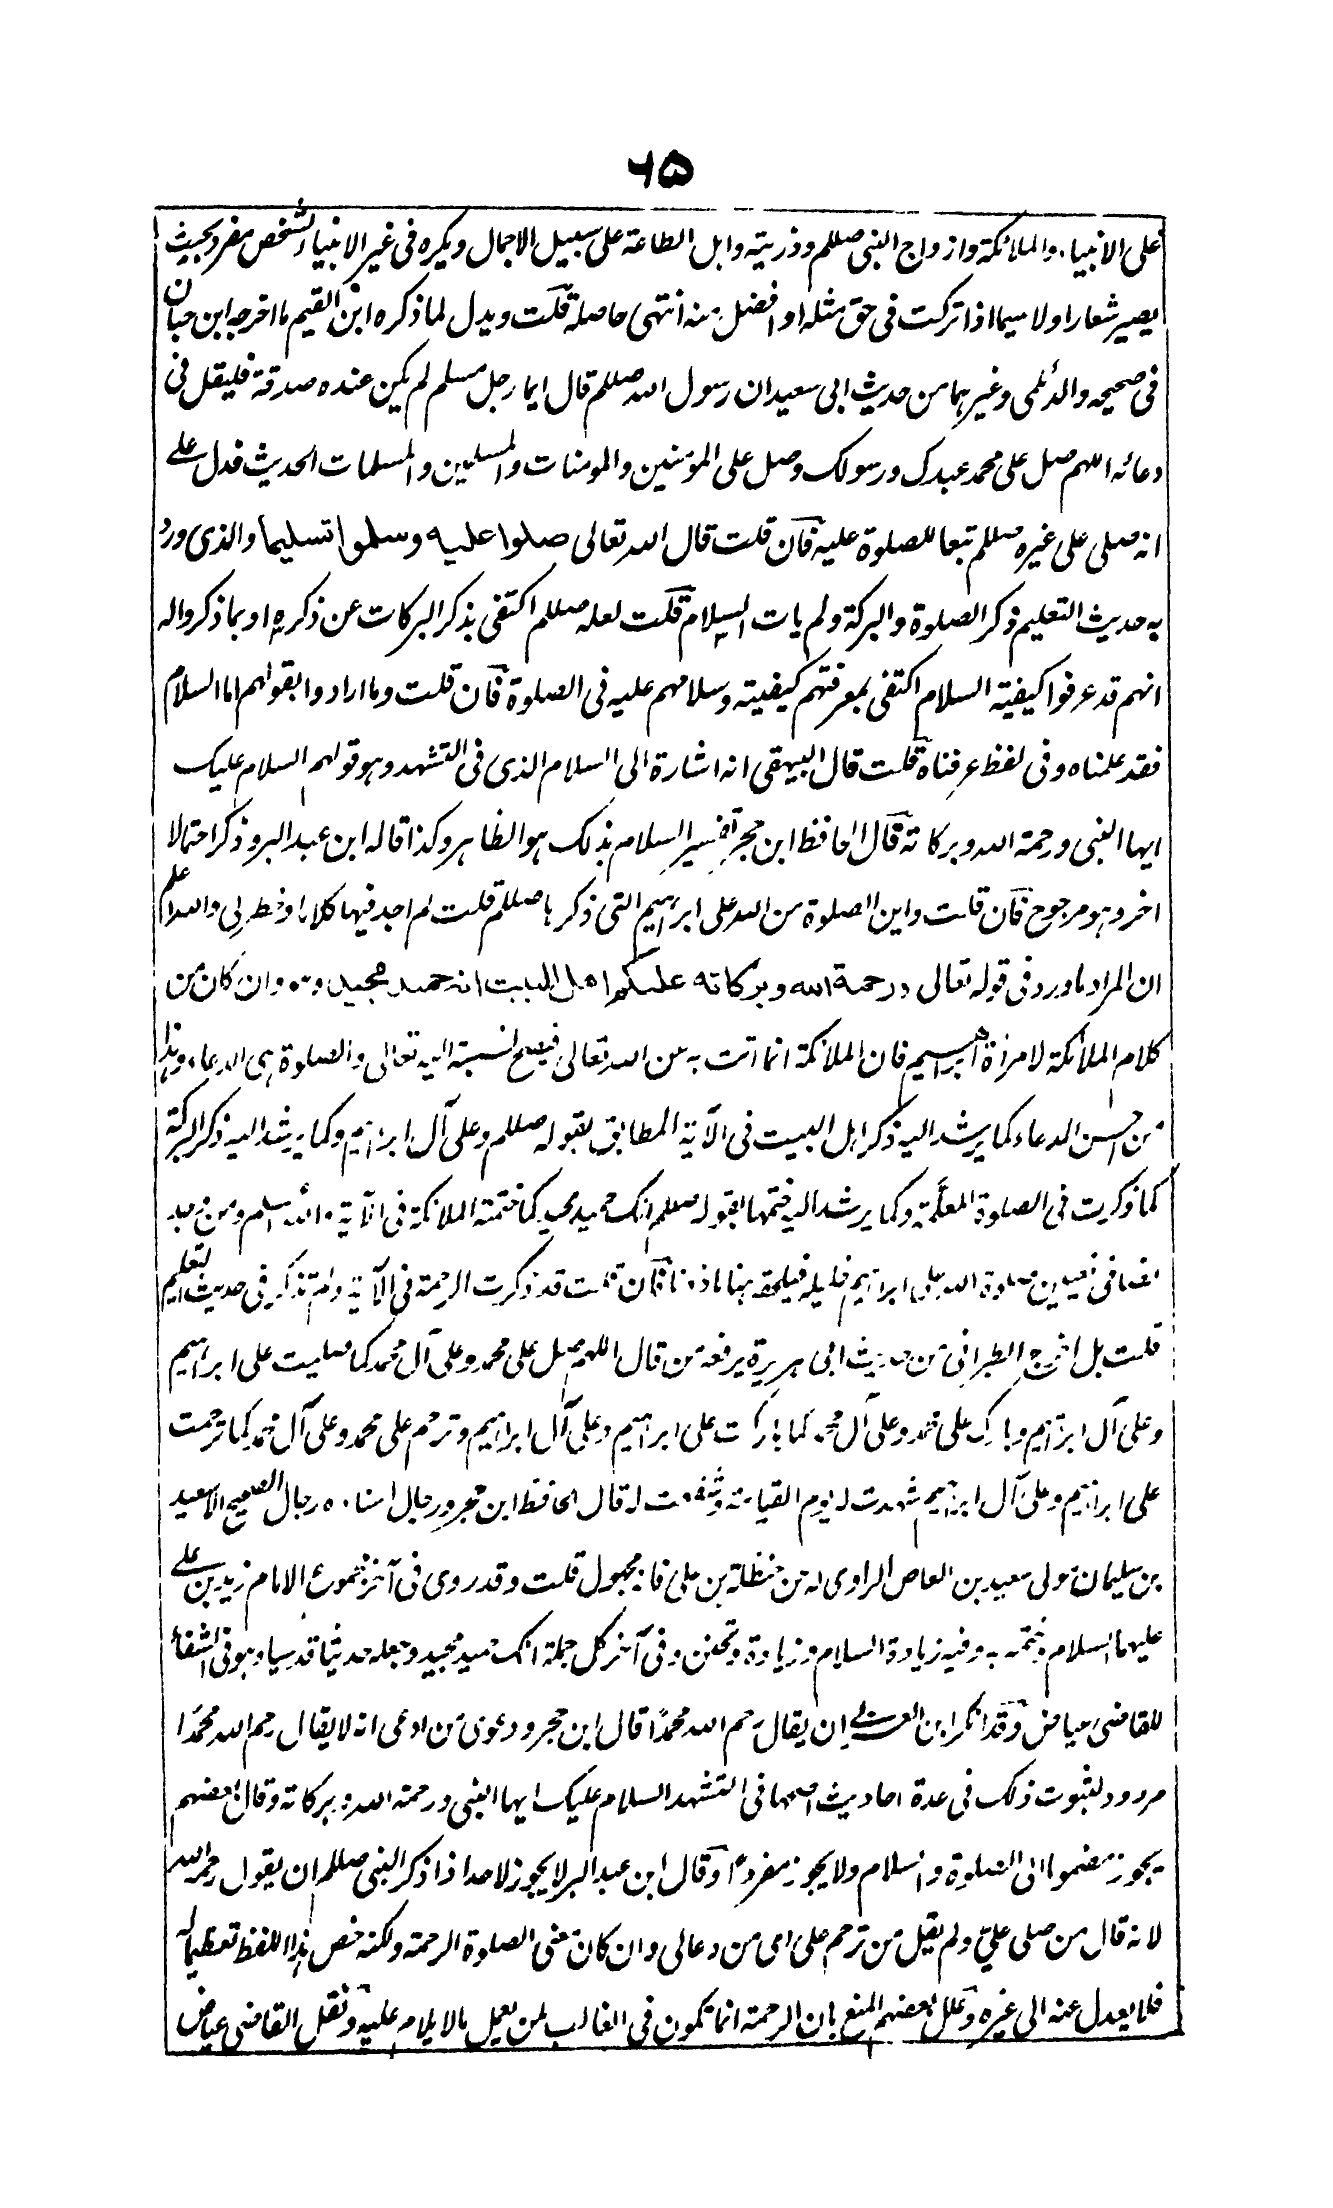 ۶۵
على الانبياء والملائكة وازواج النبى صللم وذريته واہل الطاعة على سبيل الاجمال ويكره فى غير الانبياء لشخص مفرد بحيث
يصير شعارا ولا سيما اذا ترك فى حق مثله او افضل منه انتهى حاصله قلت ويدل لما ذكره ابن القيم ما اخرجه ابن حبان
فى صحيحه والديلمى وغيرہما من حديث ابى سعيد ان رسول الله صللم قال ايما رجل مسلم لم يكن عنده صدقة فليقل فى
دعائه اللهم صل على محمد عبدك ورسولك وصل على المؤمنين والمومنات والمسلمين والمسلمات الحديث فدل على
انه صلى على غيره صللم تبعا للصلوة عليه فان قلت قال الله تعالى صلوا عليه وسلموا تسليما والذى ورد
به حديث التعليم ذكر الصلوة والبركة ولم يات السلام قلت لعله صللم اكتفى بذكر البركات عن ذكره او بما ذكروا له
انهم قد عرفوا كيفية السلام اكتفى بمعرفتهم كيفيته وسلامهم عليه فى الصلوة فان قلت وما ارادوا بقولهم اما السلام
فقد علمناه وفى لفظ عرفناه قلت قال البيهقى انه اشارة الى السلام الذى فى التشهد وہو قولهم السلام عليك
ايها النبى ورحمة الله وبركاته قال الحافظ ابن حجر تفسير السلام بذلك ہو الظاہر وكذا قاله ابن عبد البر وذكر احتمالا
اخر وہو مرجوح فان قلت واين الصلوة من الله على ابراہيم التى ذكرہا صللم قلت لم اجد فيها كلاما وخطر لى والله اعلم
ان المراد ما ورد فى قوله تعالى ورحمة الله وبركاته عليكم اهل البيت انه حميد مجيد وہو وان كان من
كلام الملائكة لامرأة ابراہيم فان الملائكة انما اتت به من الله تعالى فيصح نسبته اليه تعالى والصلوة ہى الدعاء وہذا
من احسن الدعاء كما يرشد اليه ذكر اہل البيت فى الآية المطابق لقوله صللم وعلى آل ابراہيم وكما يرشد اليه ذكر البركة
كما ذكرت فى الصلوة المعلَّمة وكما يرشد اليه ختمها بقوله صللم انك حميد مجيد كما ختمته الملائكة فى الآية والله اعلم ومن وجد
نصا فى تعيين صلوة الله على ابراہيم خليله فيلحقه ہنا ماذونا فان قلت قد ذكرت الرحمة فى الآية ولم تذكر فى حديث التعليم
قلت بل اخرج الطبرانى من حديث ابى ہريرة يرفعه من قال اللهم صل على محمد وعلى آل محمد كما صليت على ابراہيم
وعلى آل ابراہيم وبارك على محمد وعلى آل محمد كما باركت على ابراہيم وعلى آل ابراہيم وترحم على محمد وعلى آل محمد كما ترحمت
على ابراہيم وعلى آل ابراہيم شهدت له يوم القيامة وشفعت له قال الحافظ ابن حجر ورجال اسناده رجال الصحيح الا سعيد
بن سليمان مولى سعيد بن العاص الراوى له عن حنظلة بن على فانه مجهول قلت وقد روى فى آخر مجموع الامام زيد بن على
عليهما السلام وختمه به وفيه زيادة السلام وزيادة وتحنن وفى آخر كل جملة انك حميد مجيد وجعله حديثا قدسيا وہو فى الشفاء
للقاضى عياض وقد انكر ابن العربى ان يقال رحم الله محمدًا قال ابن حجر ودعوى من ادعى انه لا يقال رحم الله محمدًا
مردود لثبوت ذلك فى عدة احاديث اصحها فى التشهد السلام عليك ايها النبى ورحمة الله وبركاته وقال بعضهم
يجوز مضموما الى الصلوة والسلام ولا يجوز مفردًا وقال ابن عبد البر لا يجوز لاحد اذا ذكر النبى صللم ان يقول رحمه الله
لانه قال من صلى علىّ ولم يقل من ترحم على اى من دعا لى وان كان معنى الصلوة الرحمة ولكنه خص ہذا اللفظ تعظيما له
فلا يعدل عنه الى غيره وعلل بعضهم المنع بان الرحمة انما تكون فى الغالب لمن يعمل ما يلام عليه ونقل القاضى عياض